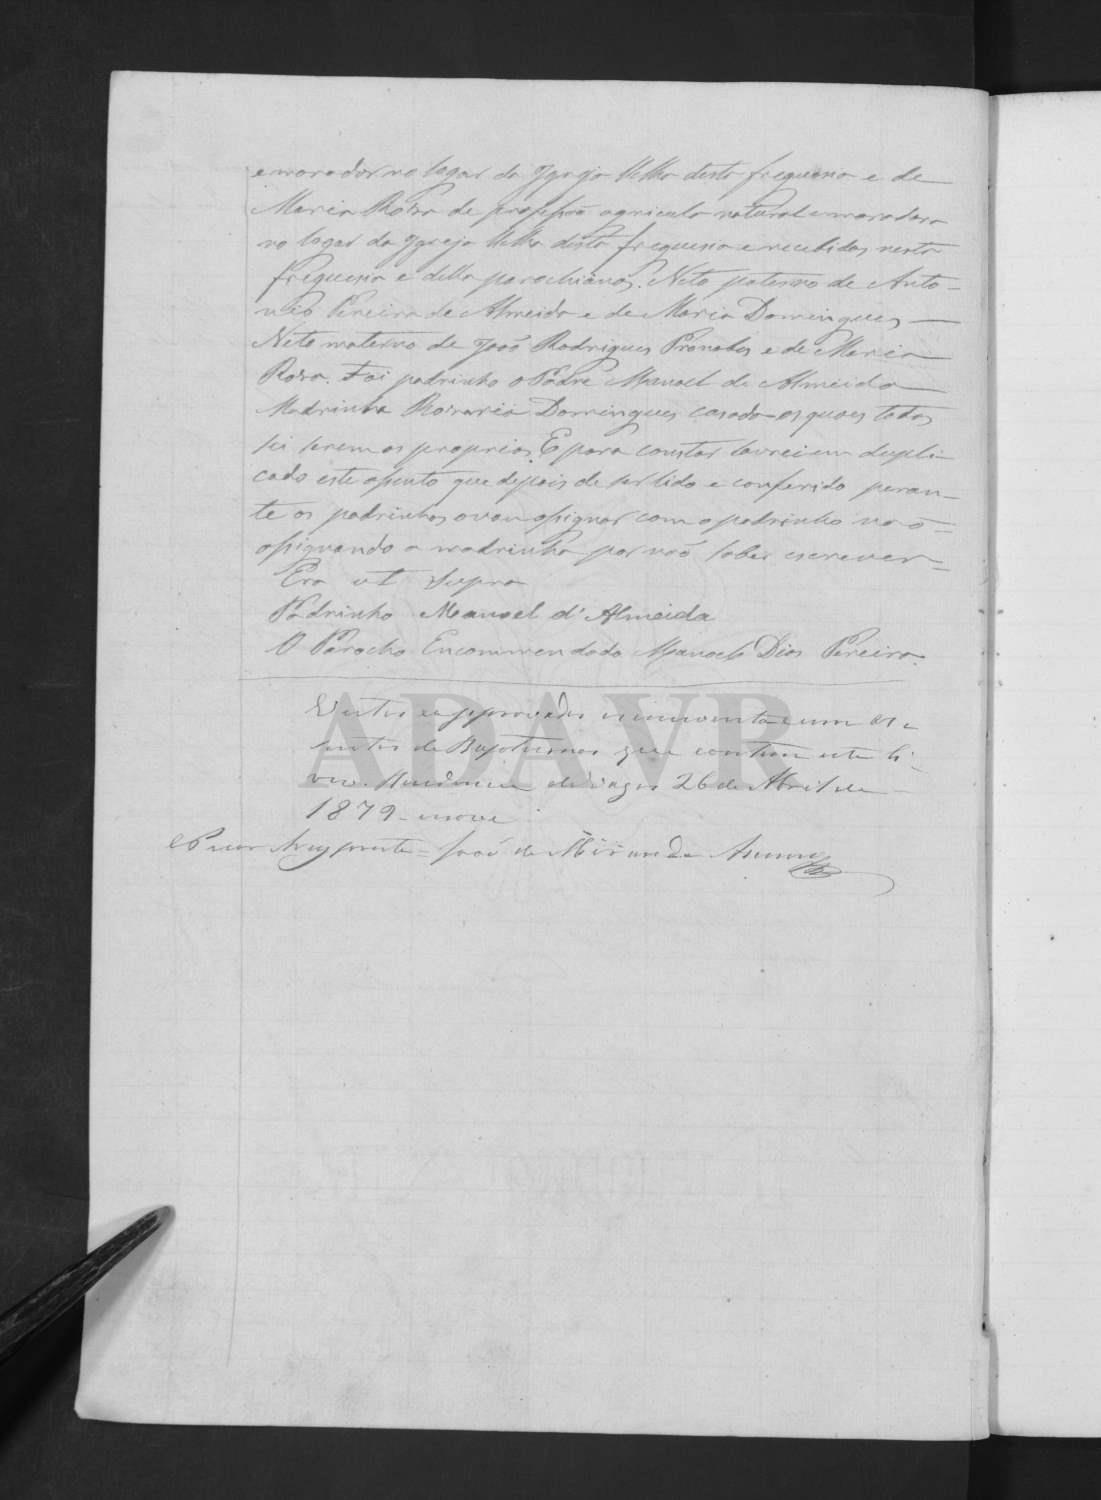 e morador no lugar da Igreja Velha desta freguesia e de
Maria Rosa de profissaõ agricula natural e moradora
no lugar da Igreja Velha desta freguesia e recebidos nesta
freguesia e della parochianos. Neto paterno de Anto-
nio Pereira de Almeida e de Maria Domingues
Neto materno de Joaõ Rodrigues e de Maria
Rosa. Foi padrinho o Padre Manoel de Almeida
Madrinha Rosaria Domingues casada os quaes todos
sei serem os proprios. E para constar lavrei em dupli-
cado este assento que depois de ser lido e conferido peran-
te os padrinhos o vou assignar com o padrinho naõ=
assignando a madrinha por naõ saber escrever=
Era ut supra
Padrinho Manoel d'Almeida
O Parocho Encommendado Manoel Dias Pereira.
ADAVR
Vistos e approvados cincoenta e um as-
sentos de Baptismos que contem este li-
vro. de Vagos 26 de Abril de
1879 - nove
José de Miranda